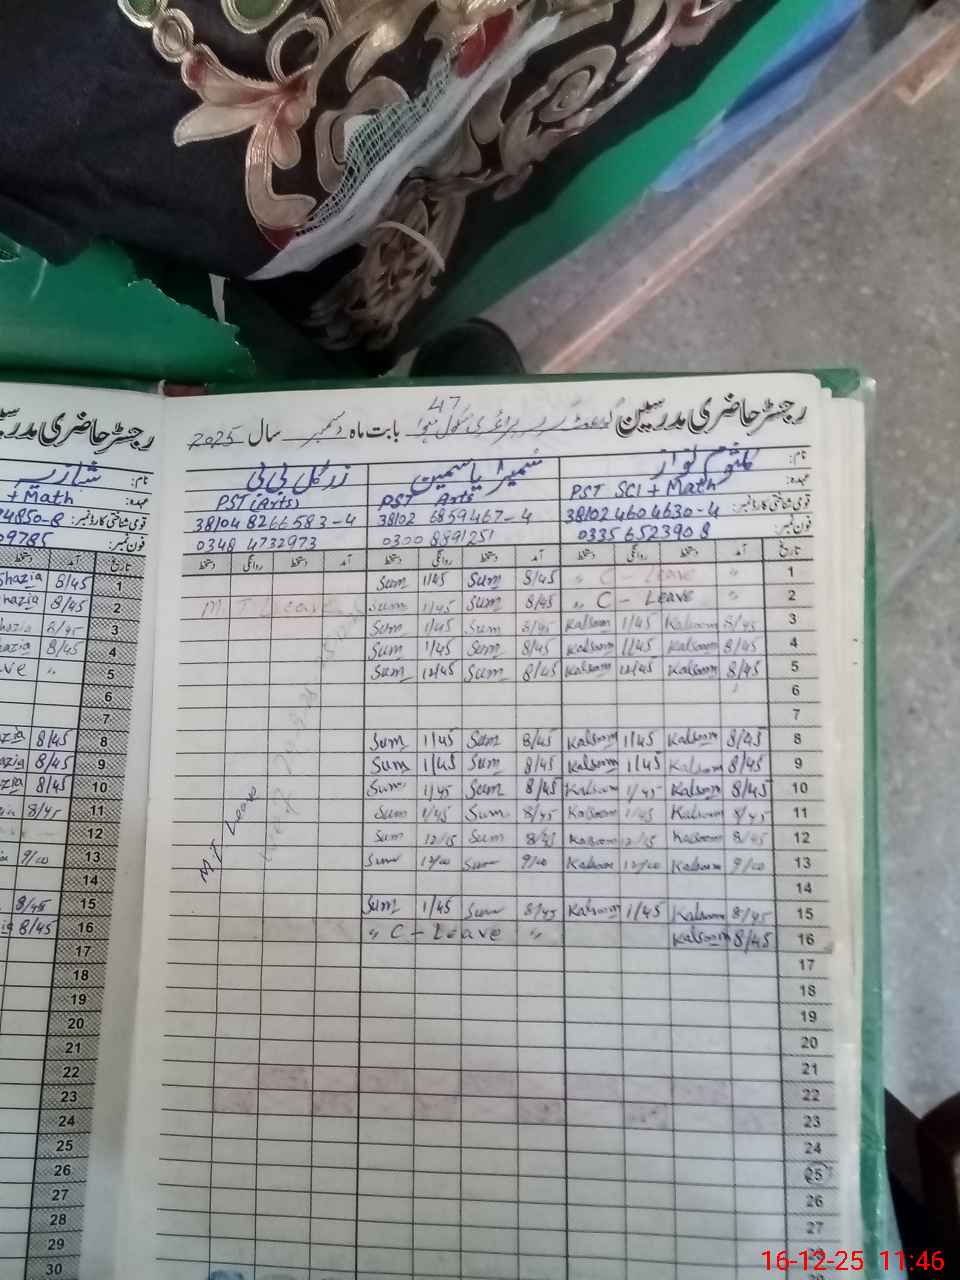 رجسٹر حاضری مدرسین 47 بابت ماہ دسمبر سال 2025
رجسٹر حاضری
نام: کلثوم نواز سمیرا یاسمین زرگل بی بی
عہدہ: PST SCI + Math PST Arts PST (Arts)
قومی شناختی کارڈ نمبر: 38102 4604630-4 38102 6859467-4 38104 8266583-4
فون نمبر: 0335 6523908 0300 8891251 0348 4732973
شازیہ
عہدہ: + Math
قومی شناختی کارڈ نمبر: 4850-8
فون نمبر: 09785
تاریخ آمد دستخط روانگی دستخط آمد دستخط روانگی دستخط آمد دستخط روانگی دستخط
Sum 1/45 Sum 8/45 " C - Leave " 1
M.T Leave Sum 1/45 Sum 8/45 " C - Leave " 2
Sum 1/45 Sum 8/45 Kalsoom 1/45 Kalsoom 8/45 3
Sum 1/45 Sum 8/45 Kalsoom 1/45 Kalsoom 8/45 4
Sum 12/45 Sum 8/45 Kalsoom 12/45 Kalsoom 8/45 5
6
7
Sum 1/45 Sum 8/45 Kalsoom 1/45 Kalsoom 8/45 8
Sum 1/45 Sum 8/45 Kalsoom 1/45 Kalsoom 8/45 9
Sum 1/45 Sum 8/45 Kalsoom 1/45 Kalsoom 8/45 10
Sum 1/45 Sum 8/45 Kalsoom 1/45 Kalsoom 8/45 11
Sum 12/15 Sum 8/45 Kalsoom 12/15 Kalsoom 8/45 12
Sum 12/00 Sum 9/00 Kalsoom 12/00 Kalsoom 9/00 13
14
Sum 1/45 Sum 8/45 Kalsoom 1/45 Kalsoom 8/45 15
" C - Leave " Kalsoom 8/45 16
17
18
19
20
21
22
23
24
25
26
27
M.T Leave
Shazia 8/45 1
hazia 8/45 2
hazia 8/45 3
hazia 8/45 4
ve " 5
6
7
zia 8/45 8
azia 8/45 9
zia 8/45 10
8/45 11
12
9/00 13
14
8/45 15
8/45 16
17
18
19
20
21
22
23
24
25
26
27
28
29
30
16-12-25 11:46